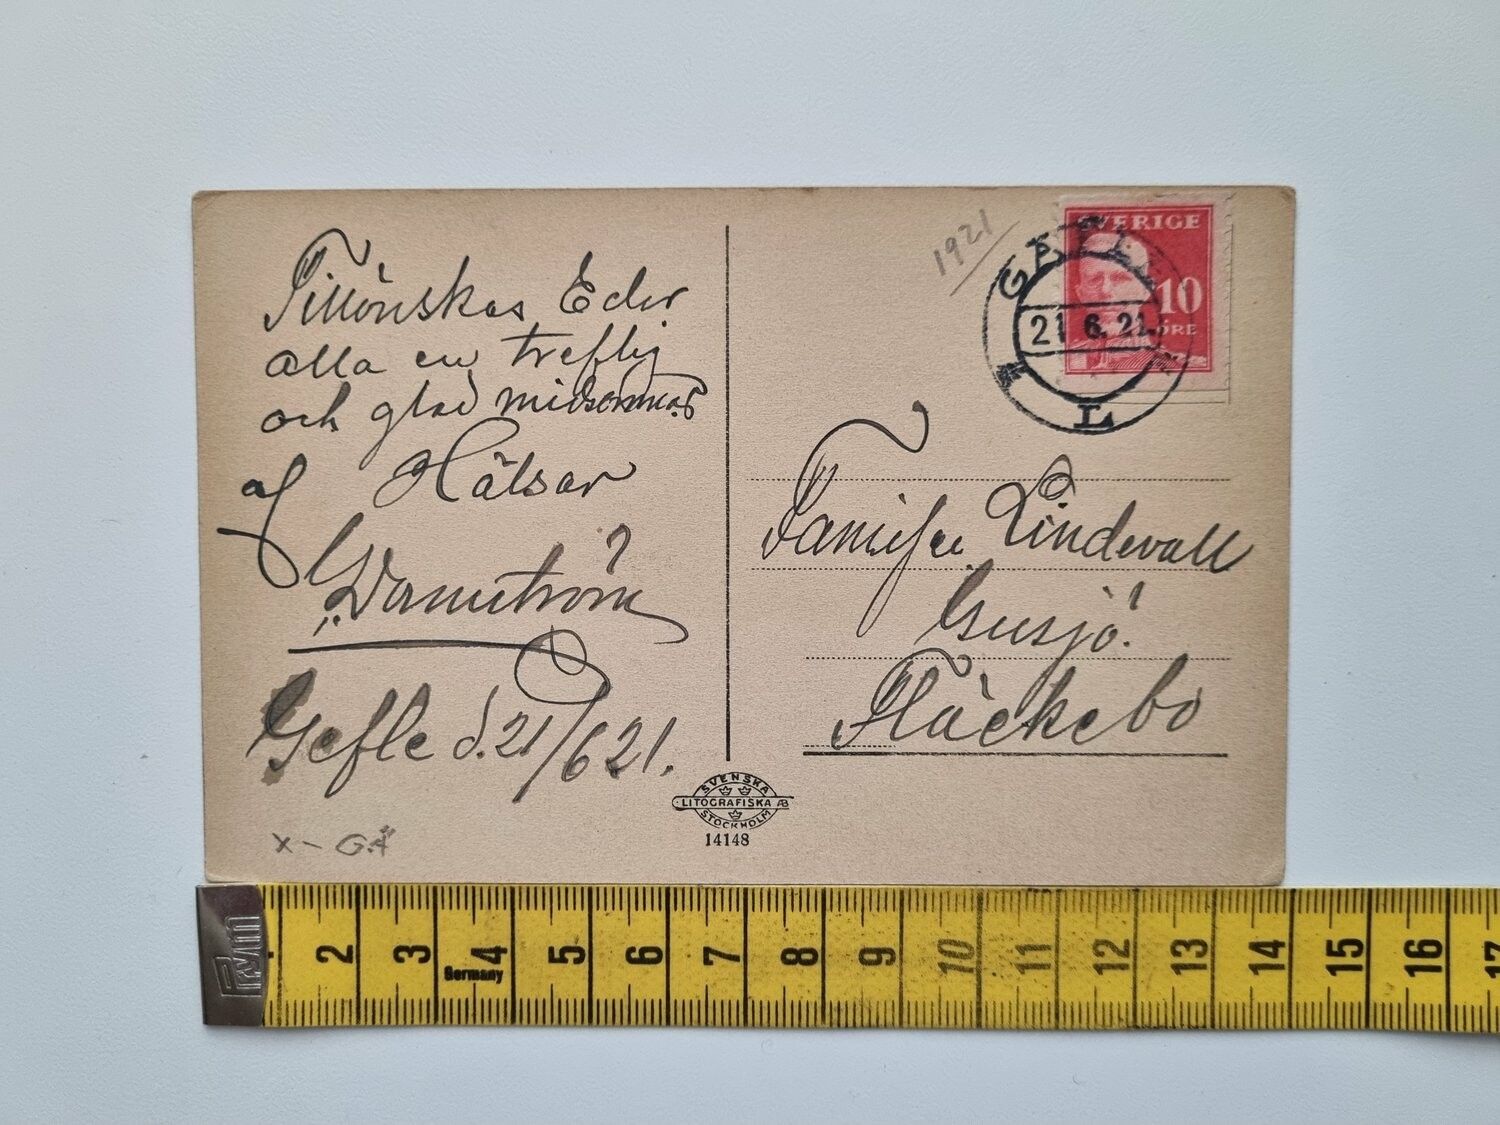 Tillönskas Eder
alla en treflig
och glad midsommar
af Hälsar
Gefle d. 21/6 21.
X – GÄ
1921
SVERIGE
10
ÖRE
GÄVLE
21 6. 21.
L
Familjen Lindevall
Gusjö.
Fläckebo
SVENSKA
LITOGRAFISKA AB
STOCKHOLM
14148
Prym
2 3 4 5 6 7 8 9 10 11 12 13 14 15 16 17
Germany